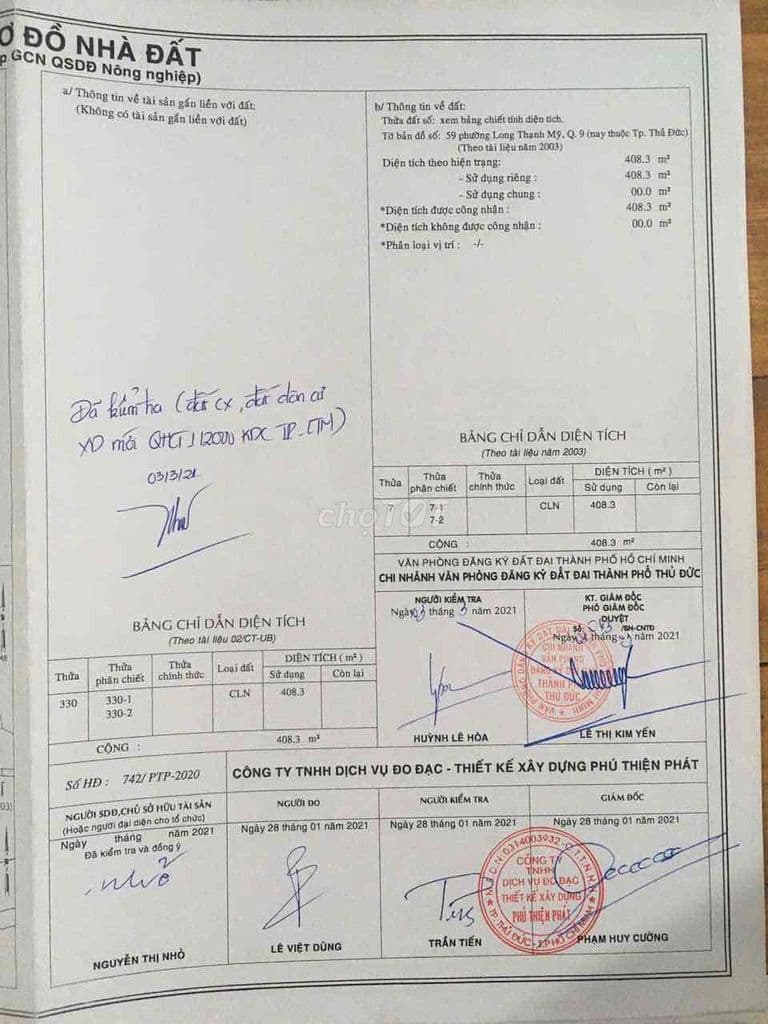 Ơ ĐỒ NHÀ ĐẤT
p GCN QSDĐ Nông nghiệp)
a/ Thông tin về tài sản gắn liền với đất:
(Không có tài sản gắn liền với đất)
b/ Thông tin về đất:
Thửa đất số: xem bảng chiết tính diện tích.
Tờ bản đồ số: 59 phường Long Thạnh Mỹ, Q. 9 (nay thuộc Tp. Thủ Đức)
(Theo tài liệu năm 2003)
Diện tích theo hiện trạng: 408.3 m²
- Sử dụng riêng : 408.3 m²
- Sử dụng chung : 00.0 m²
*Diện tích được công nhận : 408.3 m²
*Diện tích không được công nhận : 00.0 m²
*Phân loại vị trí : -/-
Đã kiểm tra (đất cx, đất dân cư
XD mới QHCT 1/2000 KDC TP-TM)
03/3/21
chợTỐT
BẢNG CHỈ DẪN DIỆN TÍCH
(Theo tài liệu năm 2003)
Thửa Thửa phân chiết Thửa chính thức Loại đất DIỆN TÍCH ( m² )
Sử dụng Còn lại
7 7-1 CLN 408.3
7-2
CỘNG : 408.3 m²
VĂN PHÒNG ĐĂNG KÝ ĐẤT ĐAI THÀNH PHỐ HỒ CHÍ MINH
CHI NHÁNH VĂN PHÒNG ĐĂNG KÝ ĐẤT ĐAI THÀNH PHỐ THỦ ĐỨC
NGƯỜI KIỂM TRA
Ngày 03 tháng 3 năm 2021
HUỲNH LÊ HÒA
KT. GIÁM ĐỐC
PHÓ GIÁM ĐỐC
DUYỆT
Số: /BN-CNTĐ
Ngày tháng năm 2021
CHI NHÁNH
VĂN PHÒNG
ĐĂNG KÝ ĐẤT ĐAI
THÀNH PHỐ
THỦ ĐỨC
LÊ THỊ KIM YẾN
BẢNG CHỈ DẪN DIỆN TÍCH
(Theo tài liệu 02/CT-UB)
Thửa Thửa phân chiết Thửa chính thức Loại đất DIỆN TÍCH ( m² )
Sử dụng Còn lại
330 330-1 CLN 408.3
330-2
CỘNG : 408.3 m²
Số HĐ : 742/ PTP-2020
CÔNG TY TNHH DỊCH VỤ ĐO ĐẠC - THIẾT KẾ XÂY DỰNG PHÚ THIỆN PHÁT
NGƯỜI SDĐ,CHỦ SỞ HỮU TÀI SẢN
(Hoặc người đại diện cho tổ chức)
Ngày tháng năm 2021
Đã kiểm tra và đồng ý
nhỏ
NGUYỄN THỊ NHỎ
NGƯỜI ĐO
Ngày 28 tháng 01 năm 2021
LÊ VIỆT DŨNG
NGƯỜI KIỂM TRA
Ngày 28 tháng 01 năm 2021
TRẦN TIẾN
GIÁM ĐỐC
Ngày 28 tháng 01 năm 2021
M.S.C.N: 0314003932-C.T.T.N.H.H
CÔNG TY
TNHH
DỊCH VỤ ĐO ĐẠC
THIẾT KẾ XÂY DỰNG
PHÚ THIỆN PHÁT
TP. THỦ ĐỨC - TP HỒ CHÍ MINH
PHẠM HUY CƯỜNG